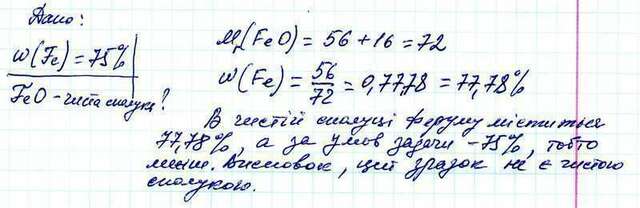 Дано:
w(Fe) = 75%
FeO - чиста сполука?
Mr(FeO) = 56 + 16 = 72
w(Fe) = 56/72 = 0,7778 = 77,78%
В чистій сполуці феруму міститься
77,78%, а за умов задачи - 75%, тобто
менше. Висновок, цей зразок не є чистою
сполукою.